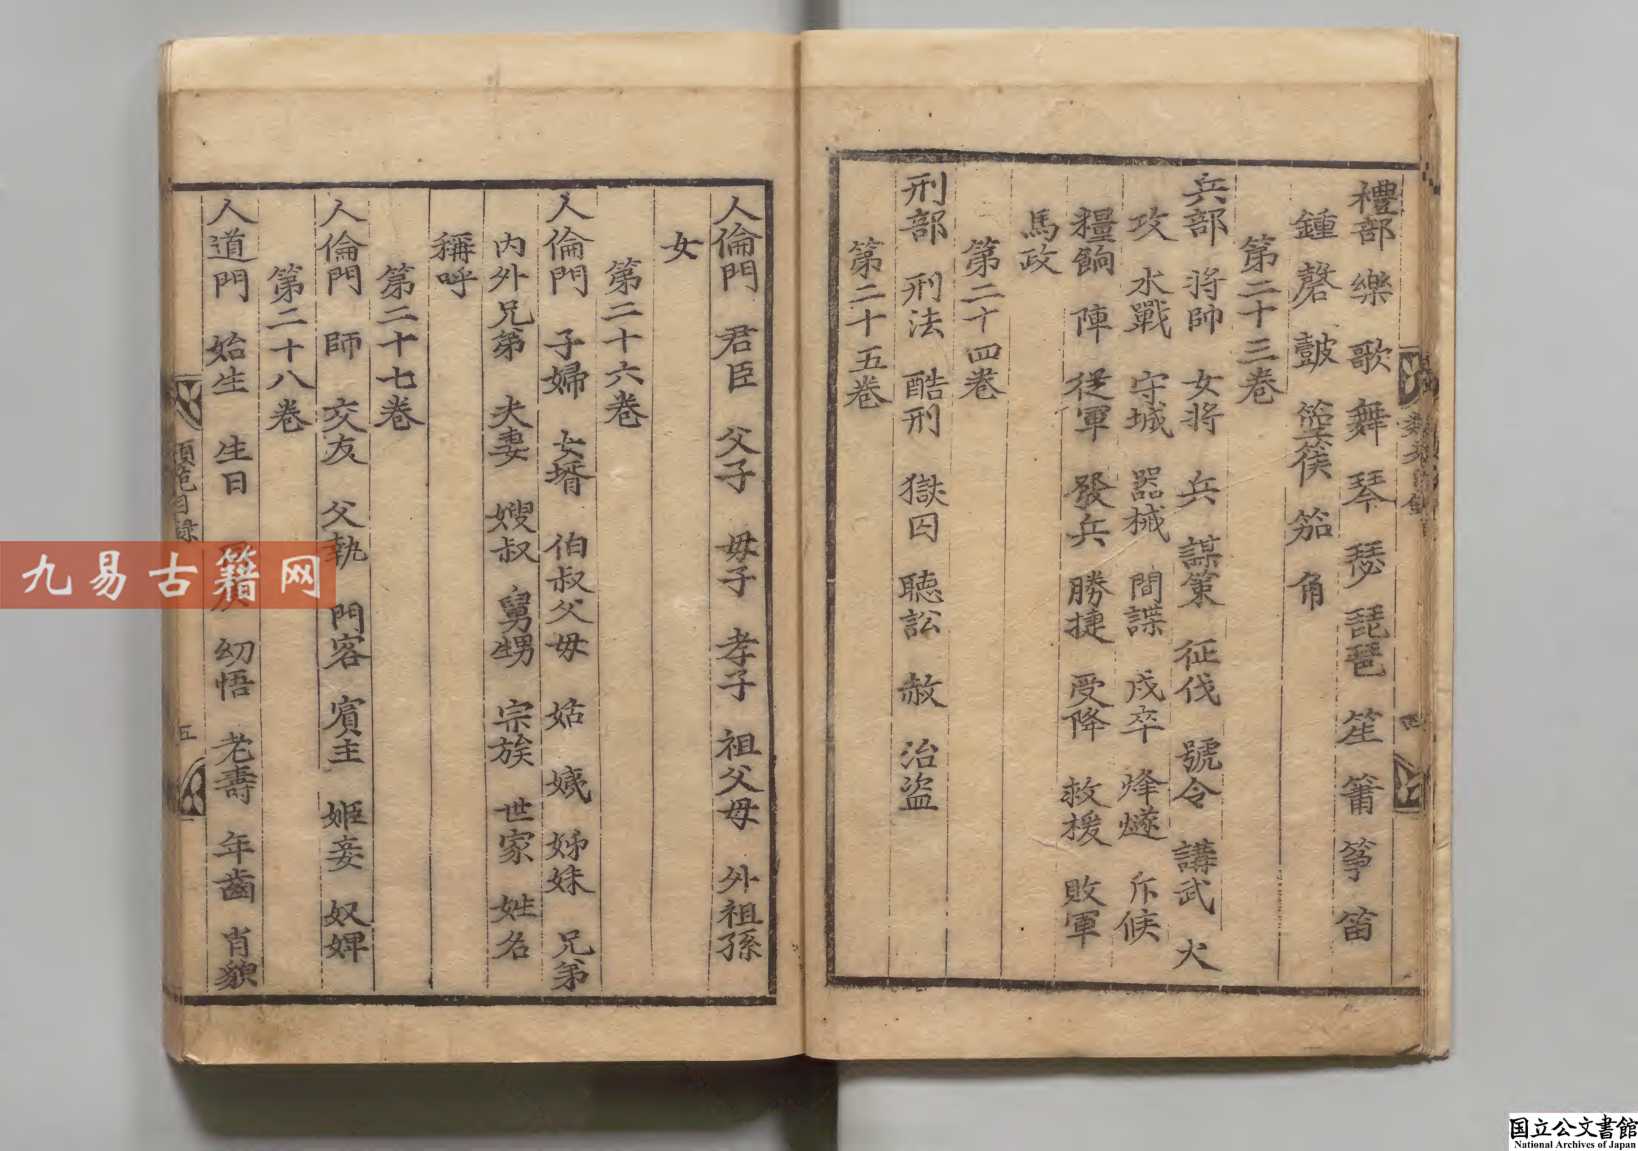 禮部 樂 歌 舞 琴 瑟 琵琶 笙 簫 箏 笛
鍾 磬 鼓 箜篌 笳 角
第二十三卷
兵部 將帥 女將 兵 謀策 征伐 號令 講武 火
攻 水戰 守城 器械 間諜 戍卒 烽燧 斥候
糧餉 陣 從軍 發兵 勝捷 受降 救援 敗軍
馬政
第二十四卷
刑部 刑法 酷刑 獄囚 聽訟 赦 治盜
第二十五卷
人倫門 君臣 父子 母子 孝子 祖父母 外祖孫
女
第二十六卷
人倫門 子婦 女壻 伯叔父母 姑 姨 姊妹 兄弟
內外兄弟 夫妻 嫂叔 舅甥 宗族 世家 姓名
稱呼
第二十七卷
人倫門 師 交友 父執 門客 賓主 姬妾 奴婢
第二十八卷
人道門 始生 生日 幼悟 老壽 年齒 肖貌
目錄
五
九易古籍网
国立公文書館
National Archives of Japan